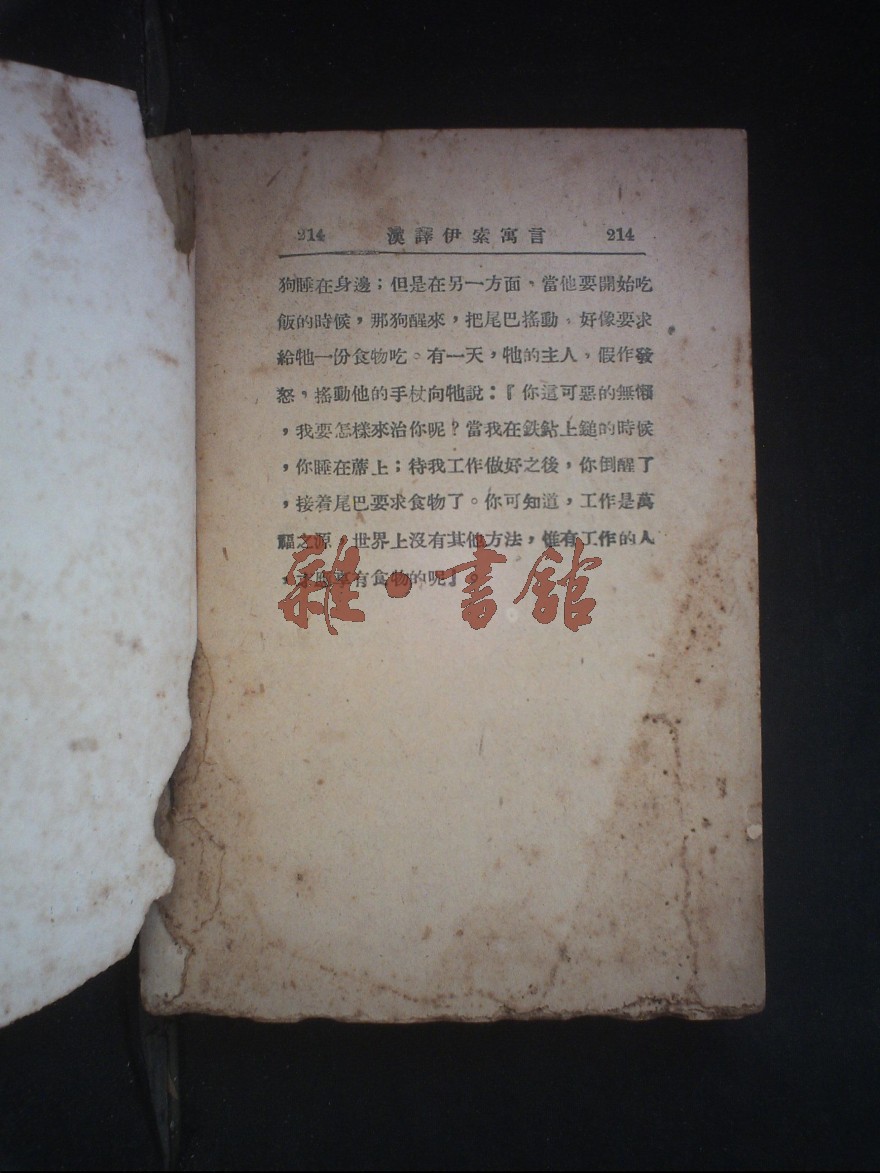 214 漢譯伊索寓言 214
狗睡在身邊；但是在另一方面、當他要開始吃
飯的時候，那狗醒來，把尾巴搖動，好像要求
給牠一份食物吃。有一天，牠的主人，假作發
怒，搖動他的手杖向牠說：『你這可惡的無懶
，我要怎樣來治你呢？當我在鉄鉆上鎚的時候
，你睡在蓆上；待我工作做好之後，你倒醒了
，接着尾巴要求食物了。你可知道，工作是萬
福之源 世界上沒有其他方法，惟有工作的人
，才應享有食物的呢』
雜·書館